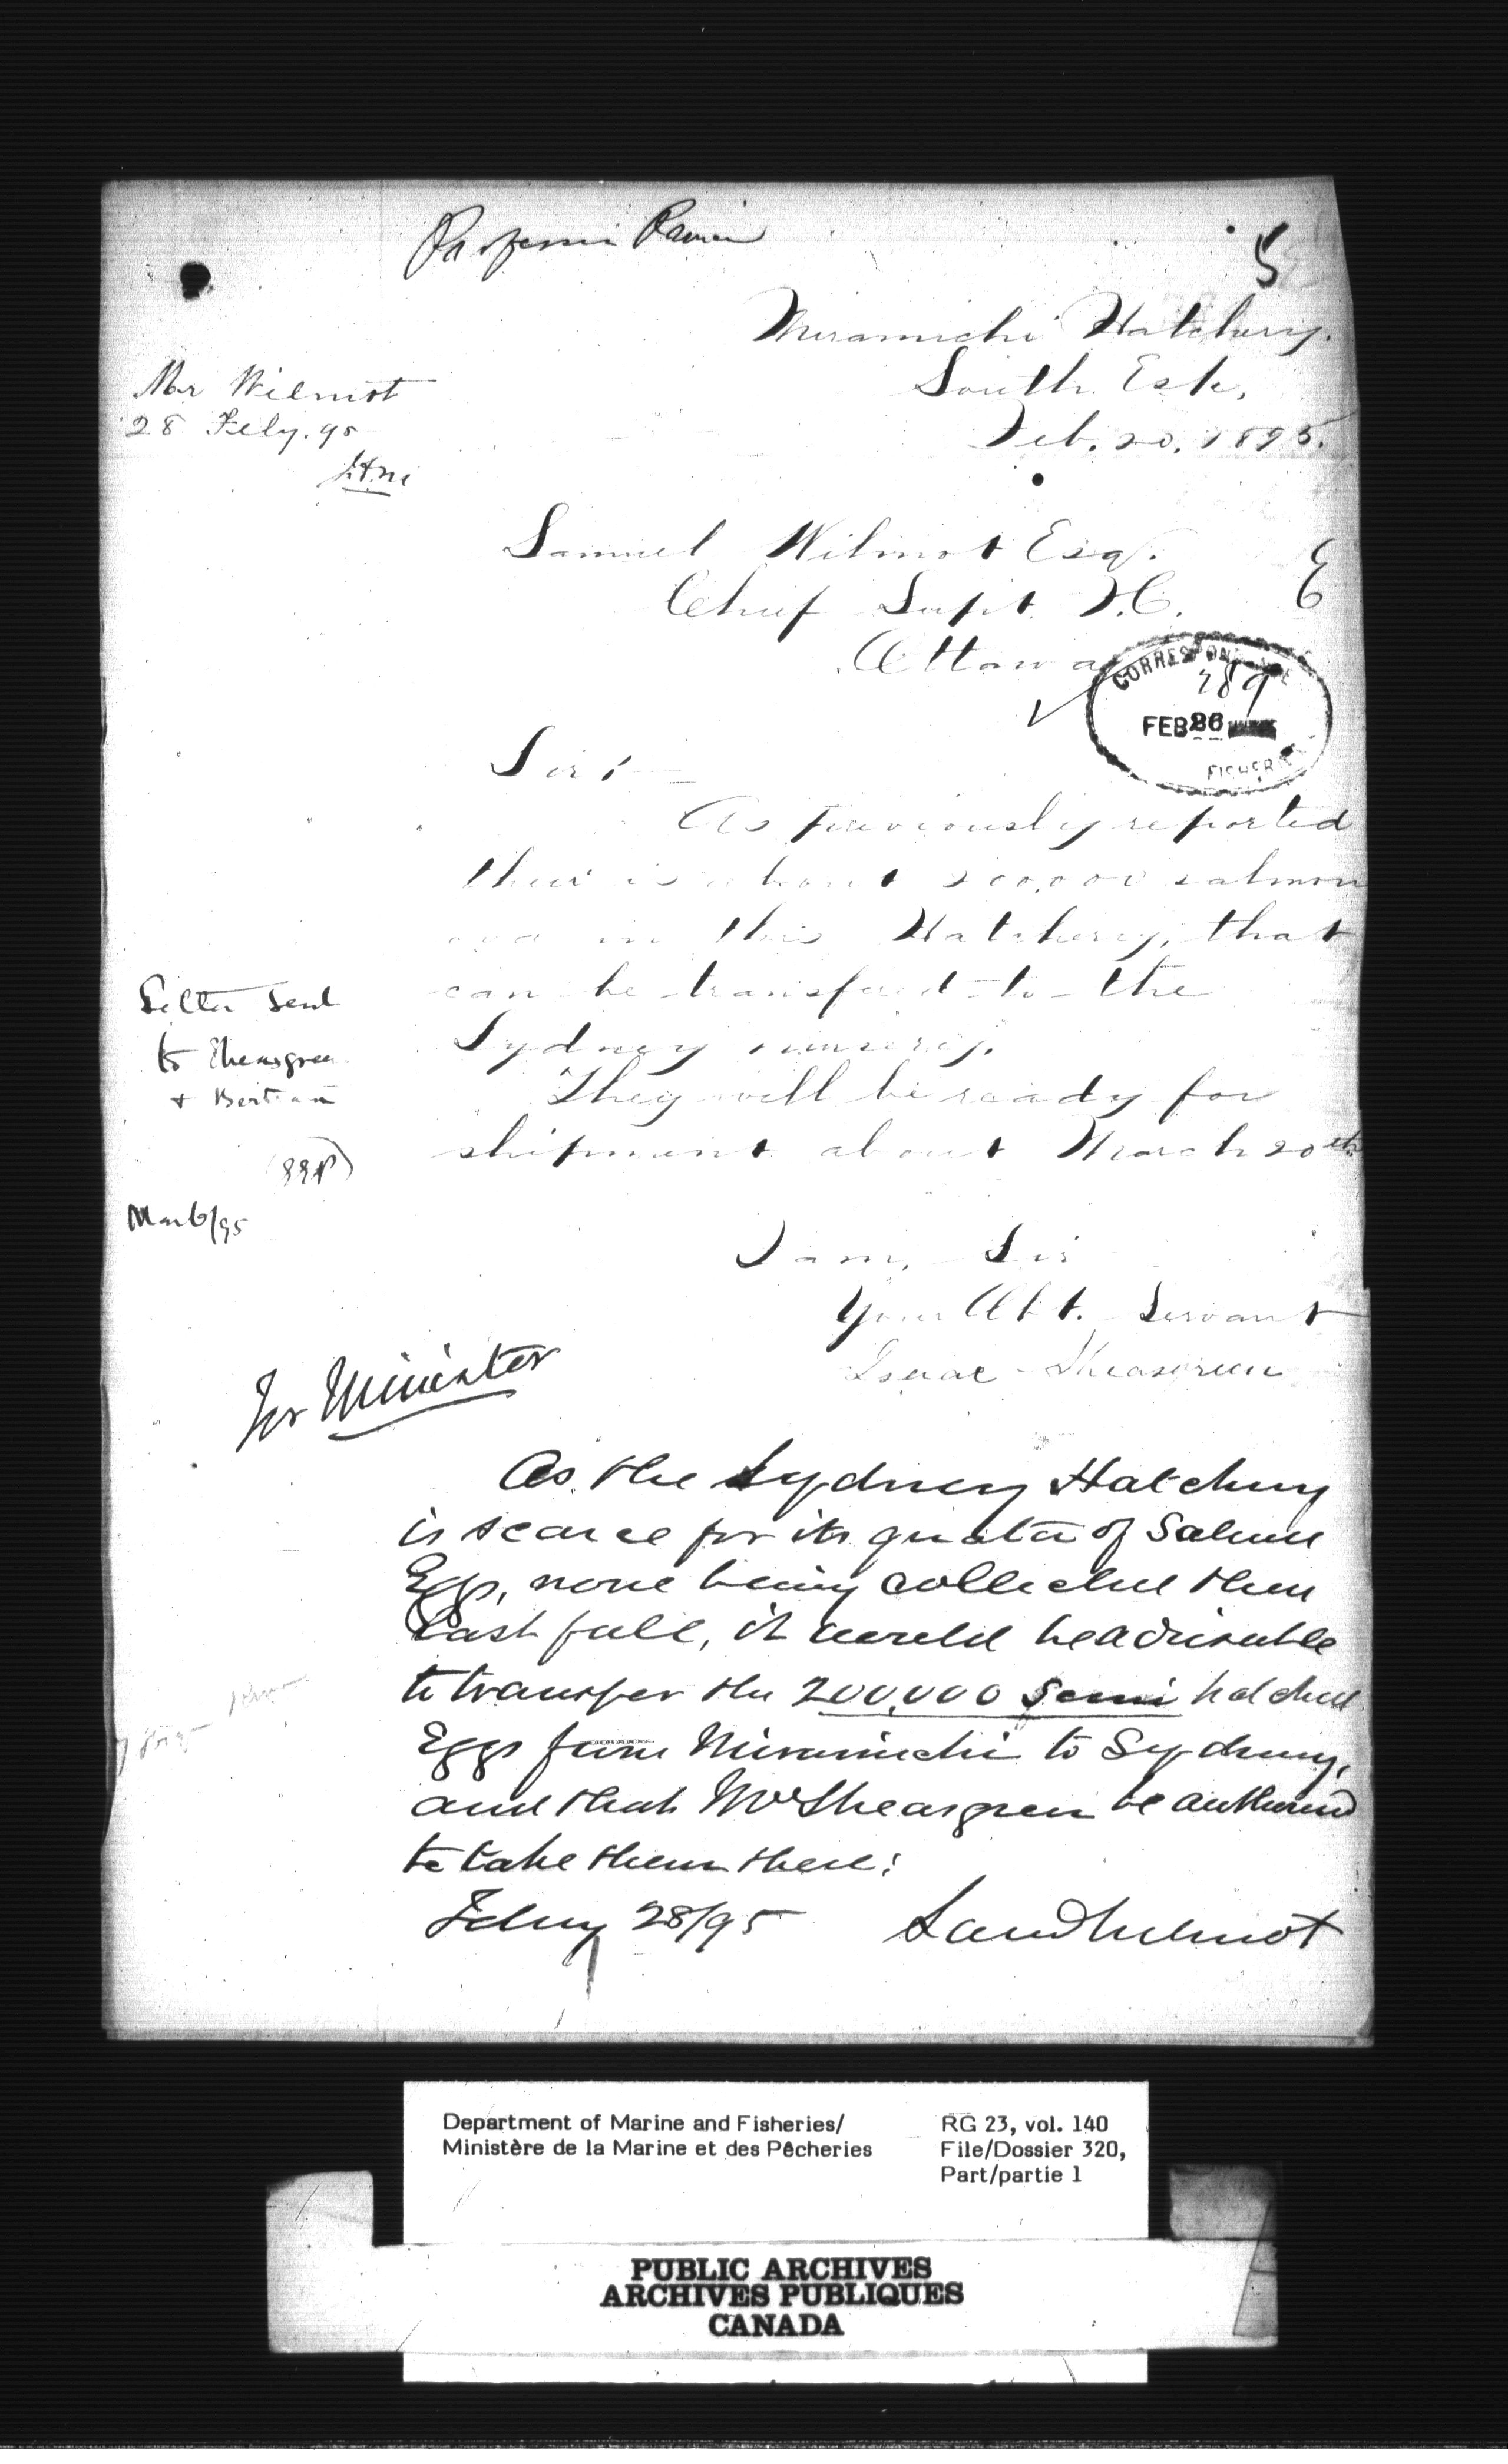 Professor Prince
5
Miramichi Hatchery.
South Esk,
Feb. 20. 1895.
Mr Wilmot
28 Feby. 95
Samuel Wilmot Esq.
Chief Supt F.C.
Ottawa
E
CORRESPONDENCE
789
FEB 26
FISHERIES
Sir:
As previously reported
their is about 200,000 salmon
ova in this Hatchery, that
can be transferd to the
Sydney nursery.
They will be ready for
shipment about March 20th
Letter sent
to Sheasgreen
+ Bertram
Mar 6/95
I am, Sir
Your Obt. Servant
Isaac Sheasgreen
For Minister
As the Sydney Hatchery
is scarce for its quota of Salmon
Eggs, none being collected there
last fall, it would be advisable
to transfer the 200,000 semi hatched
Eggs from Miramichi to Sydney,
and that Mr Sheasgreen be authorized
to take them there:
Feby 28/95 Saml Wilmot
Department of Marine and Fisheries/
Ministère de la Marine et des Pêcheries
RG 23, vol. 140
File/Dossier 320,
Part/partie 1
PUBLIC ARCHIVES
ARCHIVES PUBLIQUES
CANADA